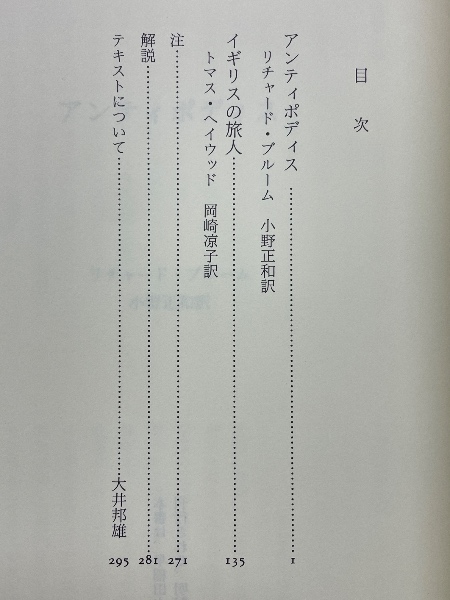 目次
アンティポディス……………………1
リチャード・ブルーム 小野正和訳
イギリスの旅人……………………135
トマス・ヘイウッド 岡崎凉子訳
注……………………271
解説……………………281
テキストについて……………………大井邦雄 295